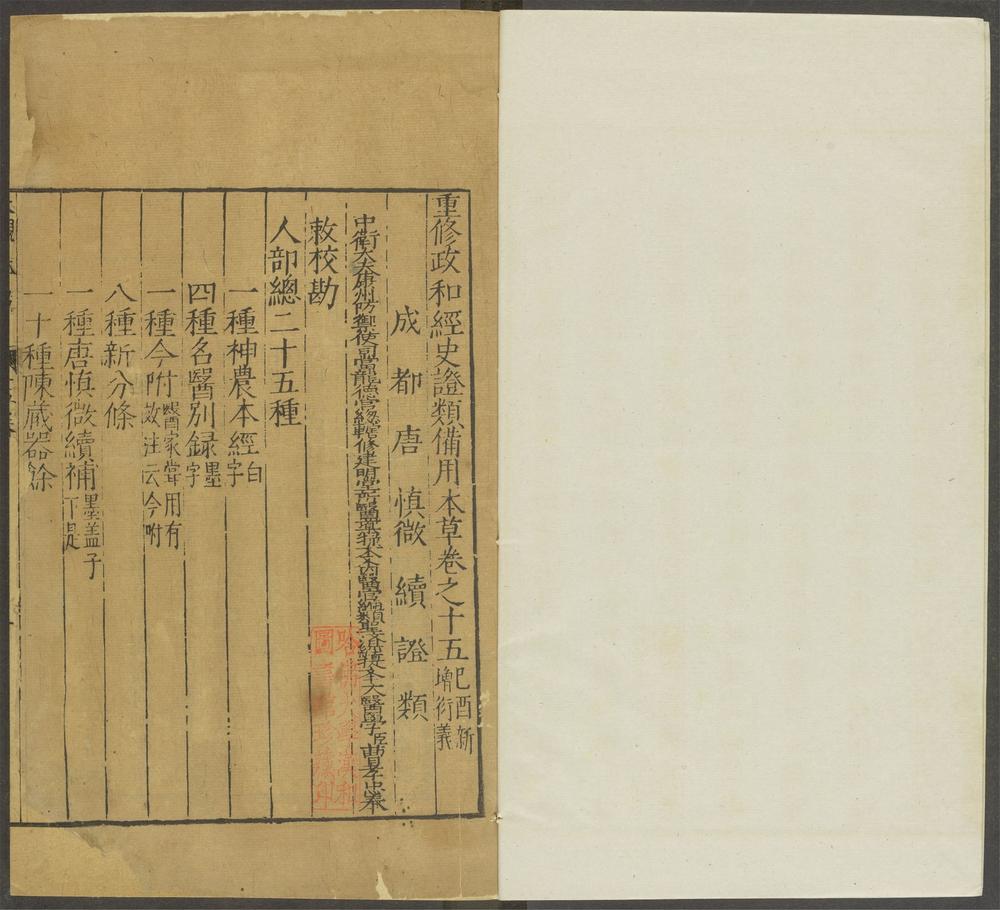 重修政和經史證類備用本草卷之十五己酉新增衍義
成都唐慎微續證類
中衛大夫康州防禦使句當龍德宮總轄修建明堂所醫藥提舉入內醫官編類聖濟經提舉太醫學臣曹孝忠奉
敕校勘
人部總二十五種
一種神農本經白字
四種名醫別録墨字
一種今附醫家嘗用有效注云今附
八種新分條
一種唐慎微續補墨盖子下是
一十種陳藏器餘